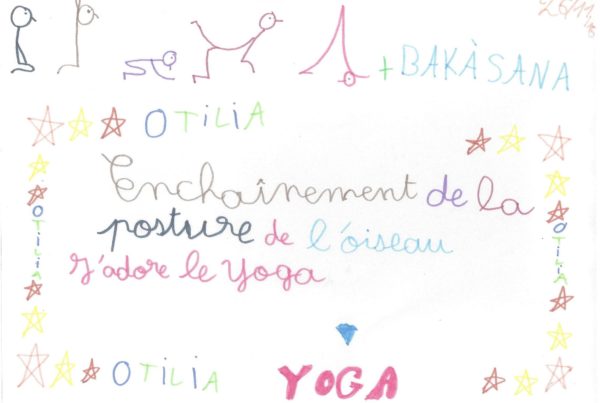 26/11
+ BAKÀSANA
OTiLiA
Enchaînement de la
posture de l'oiseau
J'adore le yoga
OTiLiA
OTiLiA
OTiLiA
YOGA